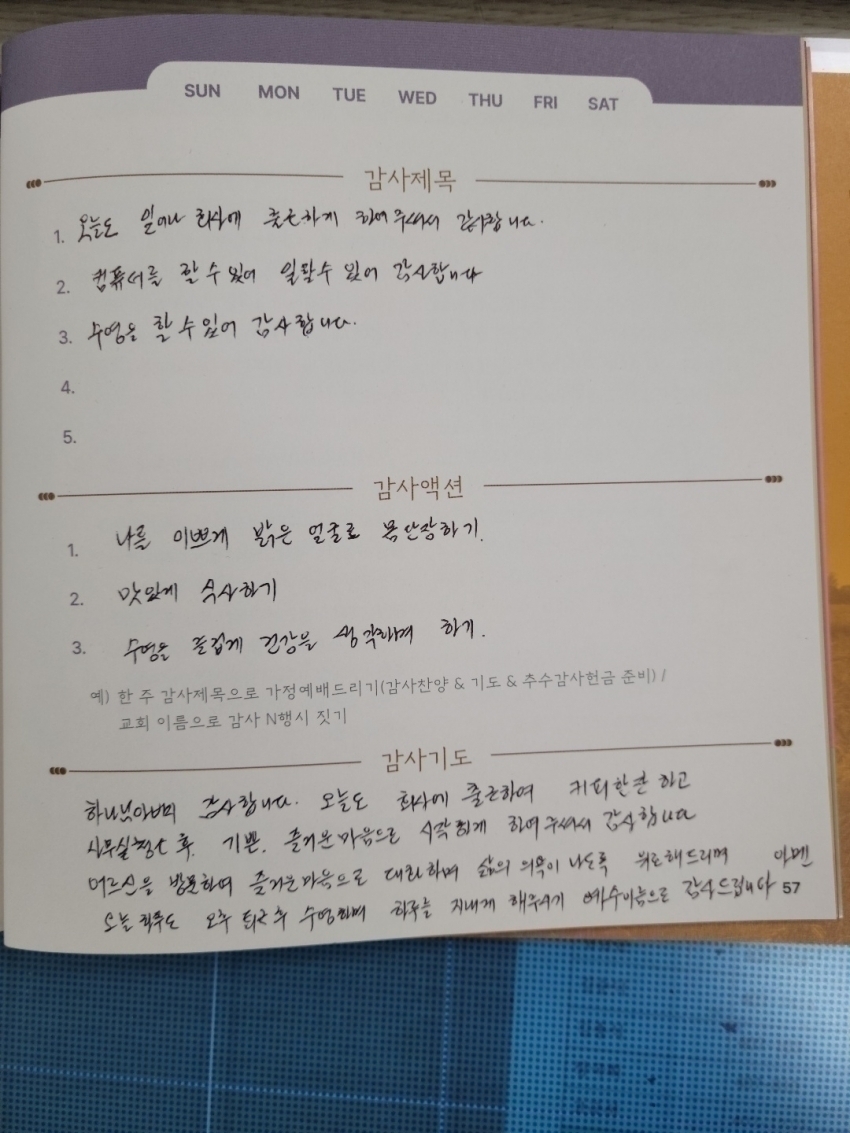 SUN MON TUE WED THU FRI SAT
감사제목
1. 오늘도 일어나 회사에 출근하게 하여주셔서 감사합니다.
2. 컴퓨터를 할 수 있어 일할수 있어 감사합니다
3. 수영을 할 수 있어 감사합니다.
4.
5.
감사액션
1. 나를 이쁘게 밝은 얼굴로 몸단장하기.
2. 맛있게 식사하기
3. 수영을 즐겁게 건강을 생각하며 하기.
예) 한 주 감사제목으로 가정예배드리기(감사찬양 & 기도 & 추수감사헌금 준비) /
교회 이름으로 감사 N행시 짓기
감사기도
하나님아버지 감사합니다. 오늘도 회사에 출근하여 커피한잔 하고
사무실청소 후. 기쁜. 즐거운마음으로 시작하게 하여주셔서 감사합니다
어르신을 방문하여 즐거운마음으로 대화하며 삶의 의욕이 나도록 위로해드리며 아멘
오늘 하루도 오후 퇴근 후 수영하며 하루를 지내게 해주시기 예수이름으로 감사드립니다 57